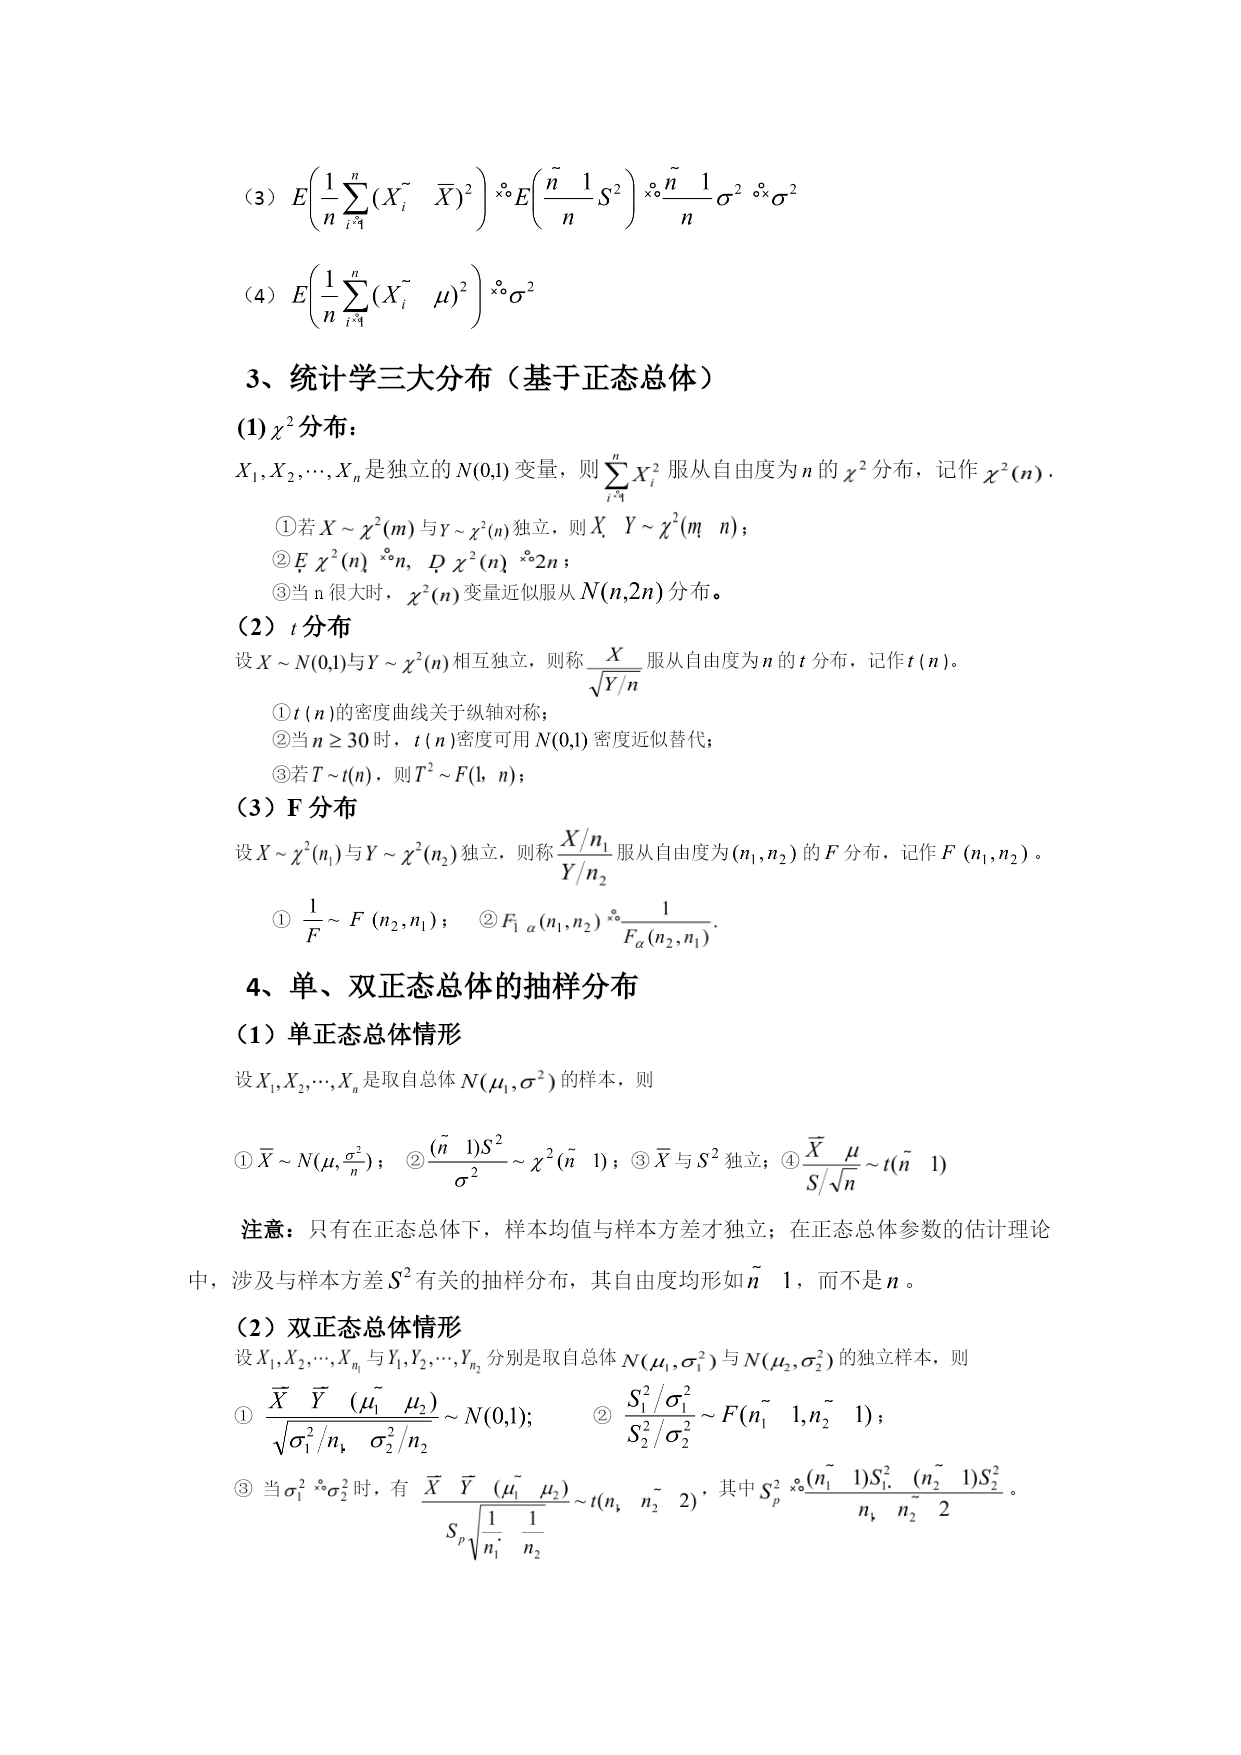 （3） E(1/n ∑_{i=1}^{n} (X_i − X̄)²) = E((n−1)/n S²) = (n−1)/n σ² ≠ σ²
（4） E(1/n ∑_{i=1}^{n} (X_i − μ)²) = σ²
3、统计学三大分布（基于正态总体）
(1) χ² 分布：
X₁, X₂, ⋯, Xₙ 是独立的 N(0,1) 变量，则 ∑_{i=1}^{n} X_i² 服从自由度为 n 的 χ² 分布，记作 χ²(n) .
①若 X ~ χ²(m) 与 Y ~ χ²(n) 独立，则 X + Y ~ χ²(m + n)；
②E[χ²(n)] = n, D[χ²(n)] = 2n；
③当 n 很大时， χ²(n) 变量近似服从 N(n,2n) 分布。
（2） t 分布
设 X ~ N(0,1)与Y ~ χ²(n) 相互独立，则称 X/√(Y/n) 服从自由度为 n 的 t 分布，记作 t ( n )。
① t ( n )的密度曲线关于纵轴对称；
②当 n ≥ 30 时， t ( n )密度可用 N(0,1) 密度近似替代；
③若 T ~ t(n)，则 T² ~ F(1，n)；
（3）F 分布
设 X ~ χ²(n₁) 与 Y ~ χ²(n₂) 独立，则称 (X/n₁)/(Y/n₂) 服从自由度为 (n₁, n₂) 的 F 分布，记作 F (n₁, n₂) 。
① 1/F ~ F (n₂, n₁)； ② F_{1−α}(n₁, n₂) = 1/F_α(n₂, n₁) .
4、单、双正态总体的抽样分布
（1）单正态总体情形
设 X₁, X₂, ⋯, Xₙ 是取自总体 N(μ₁, σ²) 的样本，则
① X̄ ~ N(μ, σ²/n)； ② (n−1)S²/σ² ~ χ²(n−1)；③ X̄ 与 S² 独立；④ (X̄ − μ)/(S/√n) ~ t(n−1)
注意：只有在正态总体下，样本均值与样本方差才独立；在正态总体参数的估计理论
中，涉及与样本方差 S² 有关的抽样分布，其自由度均形如 n−1，而不是 n 。
（2）双正态总体情形
设 X₁, X₂, ⋯, X_{n₁} 与 Y₁, Y₂, ⋯, Y_{n₂} 分别是取自总体 N(μ₁, σ₁²) 与 N(μ₂, σ₂²) 的独立样本，则
① (X̄ − Ȳ − (μ₁ − μ₂))/√(σ₁²/n₁ + σ₂²/n₂) ~ N(0,1); ② (S₁²/σ₁²)/(S₂²/σ₂²) ~ F(n₁−1, n₂−1)；
③ 当 σ₁² = σ₂² 时，有 (X̄ − Ȳ − (μ₁ − μ₂))/(S_p√(1/n₁ + 1/n₂)) ~ t(n₁ + n₂ − 2)，其中 S_p² = ((n₁−1)S₁² + (n₂−1)S₂²)/(n₁ + n₂ − 2) 。